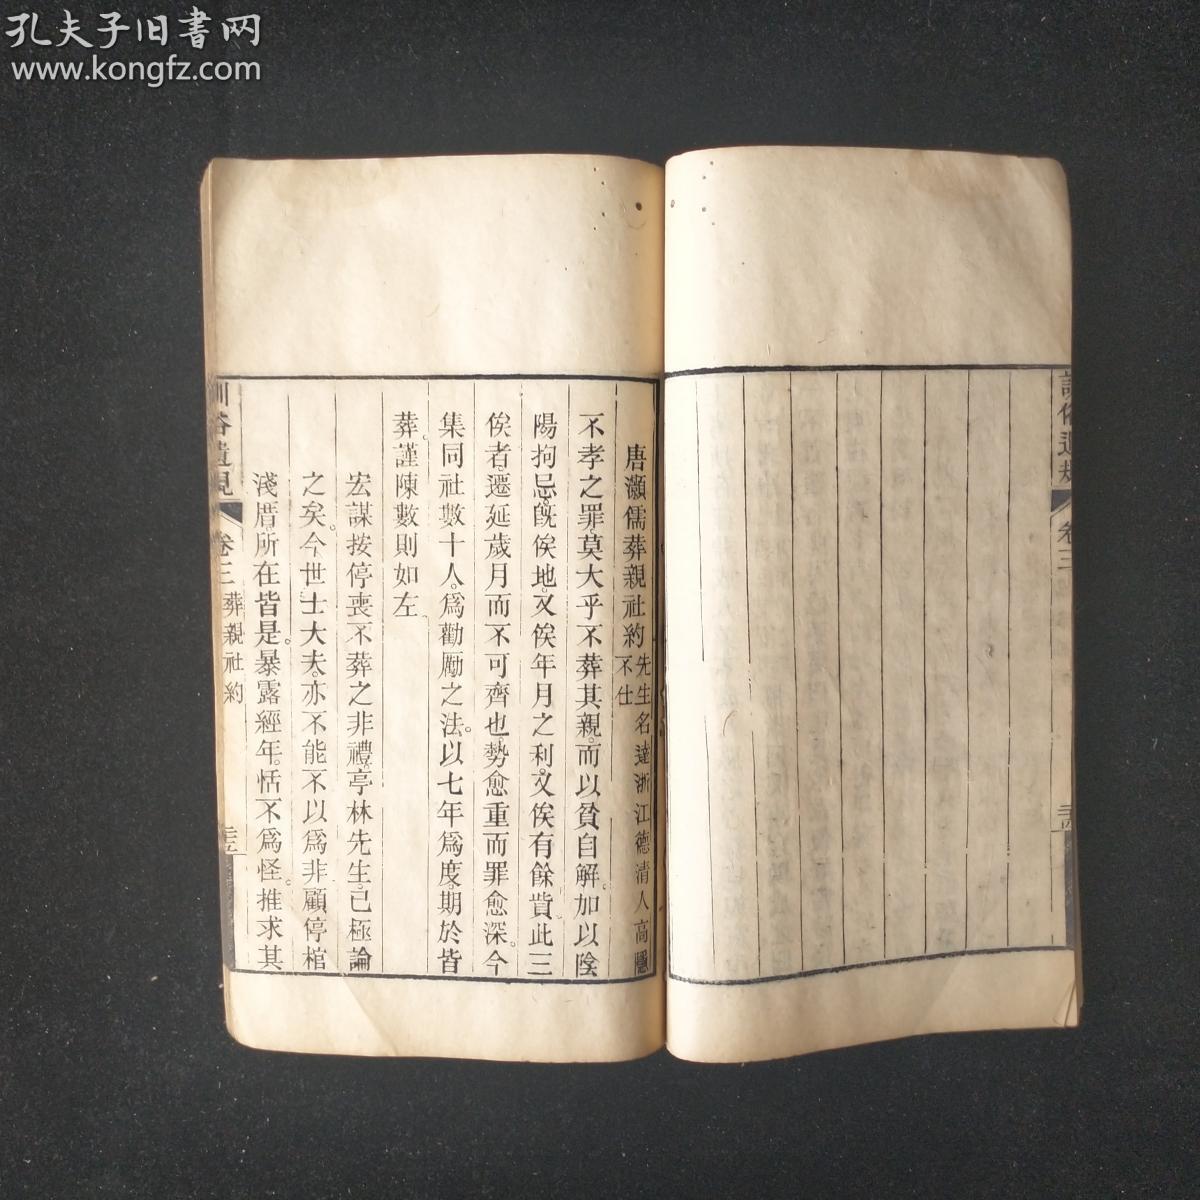 孔夫子旧書网
www.kongfz.com
訓俗遺規
卷三
唐灝儒葬親社約先生名達浙江德清人高隱不仕
不孝之罪莫大乎不葬其親。而以貧自解。加以陰
陽拘忌。旣俟地。又俟年月之利。又俟有餘貲。此三
俟者。遷延歲月而不可齊也。勢愈重而罪愈深。今
集同社數十人。爲勸勵之法。以七年爲度。期於皆
葬。謹陳數則如左
宏謀按停喪不葬之非禮。亭林先生。已極論
之矣。今世士大夫。亦不能不以爲非。顧停棺
淺厝。所在皆是。暴露經年。恬不爲怪。推求其
訓俗遺規
卷三
葬親社約